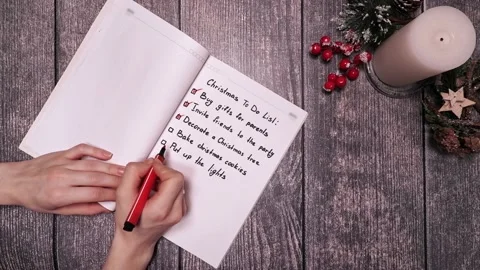 Christmas To Do List:
Buy gifts for parents
Invite friends to the party
Decorate a Christmas tree
Bake christmas cookies
Put up the lights